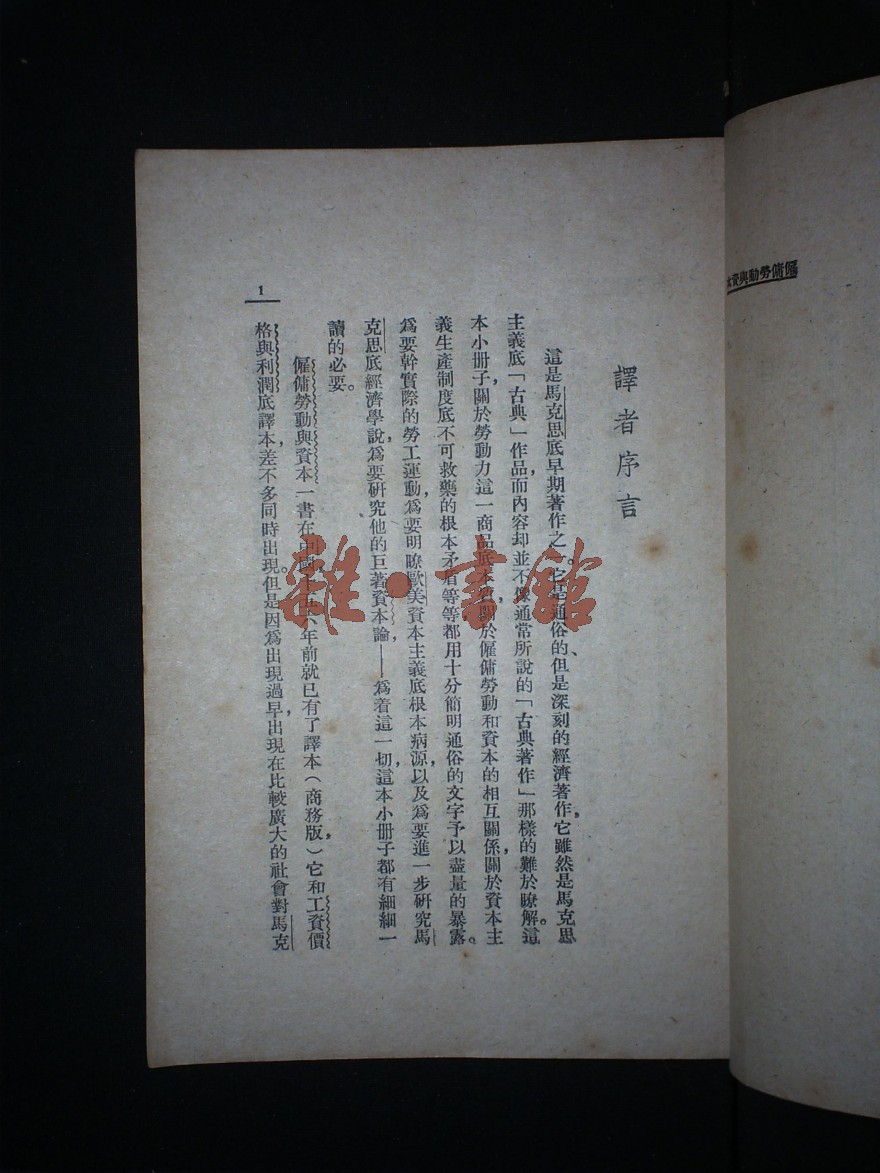 僱傭勞動與資
譯者序言
這是馬克思底早期著作之一。它是通俗的、但是深刻的經濟著作，它雖然是馬克思
主義底「古典」作品，而內容却並不像通常所說的「古典著作」那樣的難於瞭解。這
本小冊子，關於勞動力這一商品底本質，關於僱傭勞動和資本的相互關係，關於資本主
義生產制度底不可救藥的根本矛盾等等都用十分簡明通俗的文字予以盡量的暴露。
為要幹實際的勞工運動，為要明瞭歐美資本主義底根本病源，以及為要進一步研究馬
克思底經濟學說，為要研究他的巨著資本論，——為着這一切，這本小冊子都有細細一
讀的必要。
僱傭勞動與資本一書在中國十五六年前就已有了譯本（商務版，）它和工資價
格與利潤底譯本，差不多同時出現。但是因為出現過早，出現在比較廣大的社會對馬克
1
雜·書館